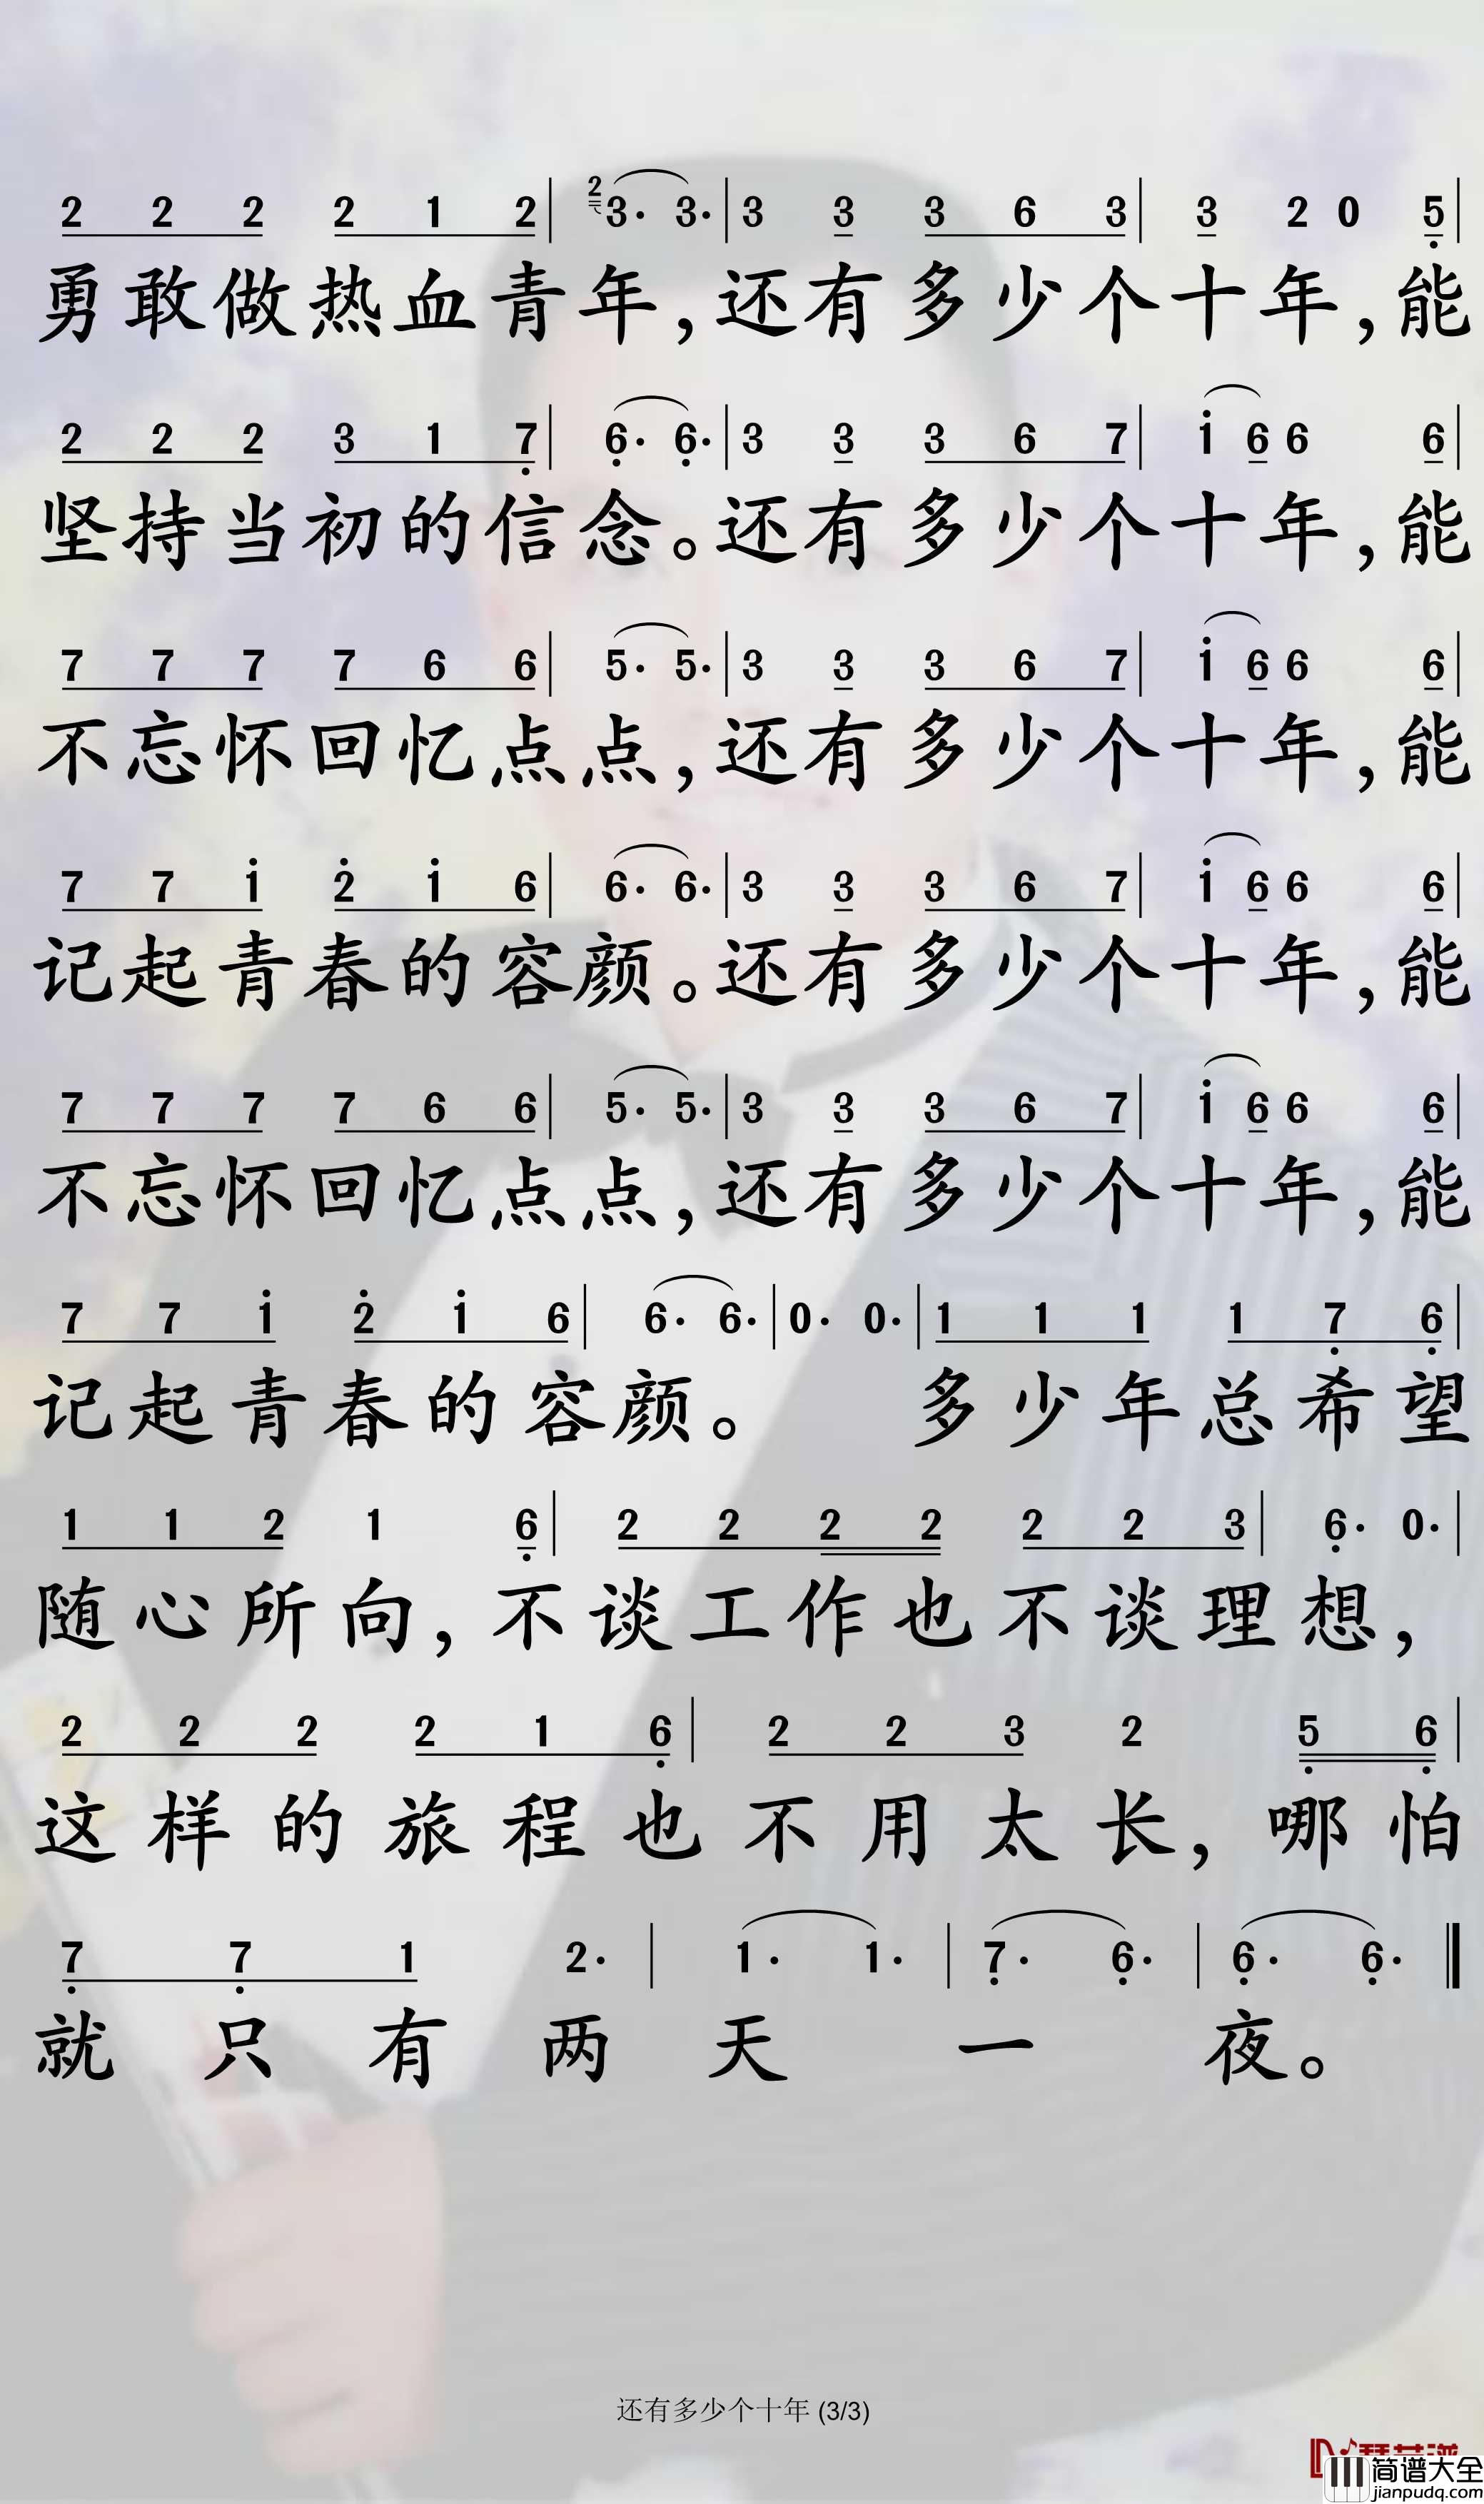 2 2 2 2 1 2 | 2 3· 3· | 3 3 3 6 3 | 3 2 0 5 |
勇敢做热血青年,还有多少个十年,能
2 2 2 3 1 7 | 6· 6· | 3 3 3 6 7 | 1 6 6 6 |
坚持当初的信念。还有多少个十年,能
7 7 7 7 6 6 | 5· 5· | 3 3 3 6 7 | 1 6 6 6 |
不忘怀回忆点点,还有多少个十年,能
7 7 1 2 1 6 | 6· 6· | 3 3 3 6 7 | 1 6 6 6 |
记起青春的容颜。还有多少个十年,能
7 7 7 7 6 6 | 5· 5· | 3 3 3 6 7 | 1 6 6 6 |
不忘怀回忆点点,还有多少个十年,能
7 7 1 2 1 6 | 6· 6· | 0· 0· | 1 1 1 1 7 6 |
记起青春的容颜。 多少年总希望
1 1 2 1 6 | 2 2 2 2 2 2 3 | 6· 0· |
随心所向,不谈工作也不谈理想,
2 2 2 2 1 6 | 2 2 3 2 5 6 |
这样的旅程也不用太长,哪怕
7 7 1 2· | 1· 1· | 7· 6· | 6· 6· ‖
就只有两天一夜。
还有多少个十年 (3/3)
简谱大全
jianpudq.com